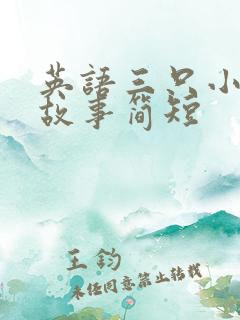 英語三只小
故事简短
王鈞
未经同意禁止转载